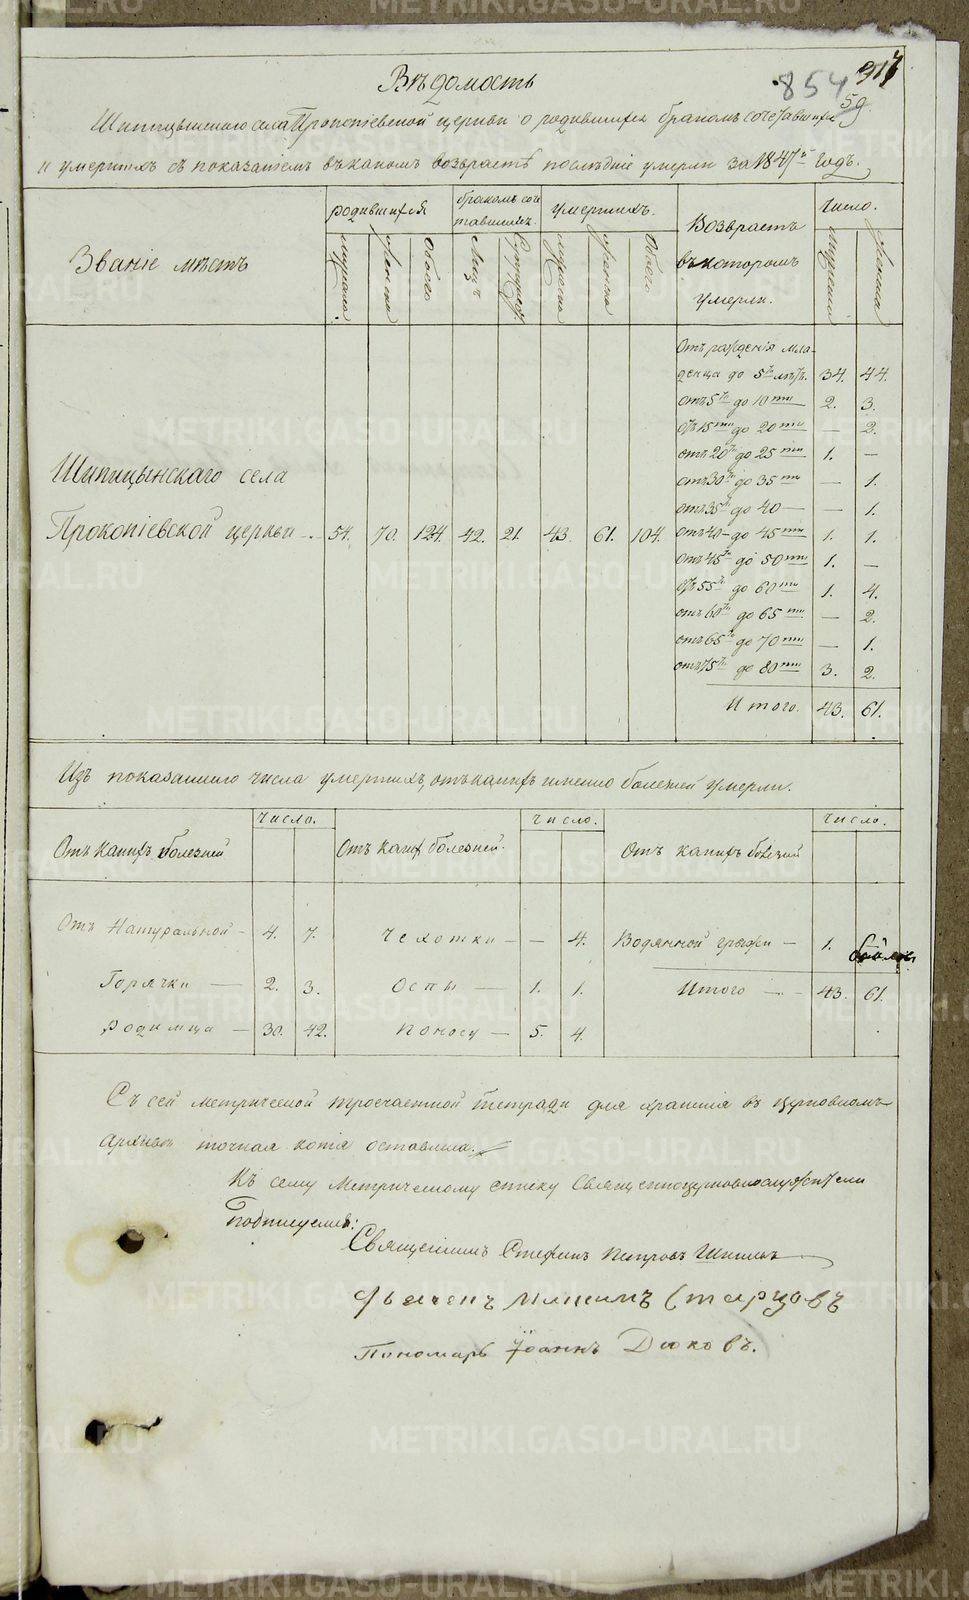 Вѣдомость
854
59
Шипицынскаго села Прокопіевской церкви о родившихся бракомъ сочетавшихся
и умершихъ съ показаніемъ въ какомъ возврастѣ послѣдніе умерли за 1847й годъ.
Званіе мѣстъ
родившихся
бракомъ соче
тавшихся.
умершихъ.
Возврастъ
въ которомъ
умерли.
Число.
мужеска
женска
Обоего
Лицъ
Супружествъ
мужеска
женска
Обоего
Мужеска
Женска
Отъ рожденія мла-
денца до 5ти лѣтъ. 34. 44.
отъ 5ти до 10ти 2. 3.
отъ 15ти до 20ти — 2.
отъ 20ти до 25ти 1. —
отъ 30ти до 35ти — 1.
отъ 35ти до 40 — — 1.
Шипицынскаго села
Прокопіевской церкви 54. 70. 124. 42. 21. 43. 61. 104. отъ 40 до 45ти 1. 1.
отъ 45ти до 50ти 1. —
отъ 55ти до 60ти 1. 4.
отъ 60ти до 65ти — 2.
отъ 65ти до 70ти — 1.
отъ 75ти до 80ти 3. 2.
Итого. 43. 61.
Изъ показаннаго числа умершихъ, отъ какихъ именно болезней умерли.
Отъ какихъ болезней Число. Отъ каких болезней. Число. Отъ какихъ болезней Число.
Отъ Натуральной - 4. 7. Чехотки - - 4. Водянной - 1.
Горячки — 2. 3. Оспы — 1. 1. Итого — 43. 61.
Родимца — 30. 42. Поносу — 5. 4.
Съ сей метрической троечастной тетради для храненія въ церковномъ
Архивѣ точная копія оставлена.
Къ сему Метрическому списку Священноцерковнослужители
подписуемся:
Священникъ Стефанъ Петровъ
Дьячекъ Максимъ Старцовъ
Пономарь Іоаннъ Дюковъ.
METRIKI.GASO-URAL.RU